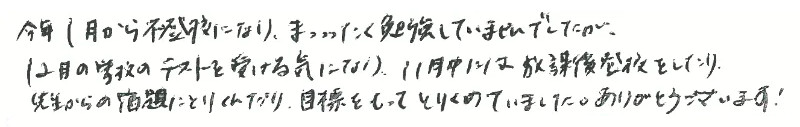 今年1月から不登校になり、まっったく勉強していませんでしたが、
12月の学校のテストを受ける気になり、11月中には放課後登校をしたり、
先生からの宿題にとりくんだり、目標をもってとりくめていました。ありがとうございます!